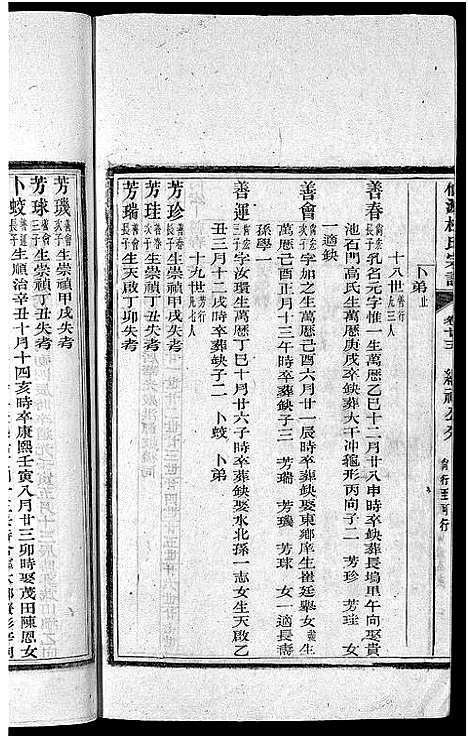 卜弟
十八世 善行 九三人
善春 尚宏長子 乳名元字惟一生萬歷乙巳十二月廿八申時卒缺葬長塢甲午向娶貴
池石門高氏生萬歷庚戌卒缺葬大干冲龜形丙向子二 芳珍 芳珪 女
一適缺
善會 尚宏次子 字如之生萬歷己酉六月廿一辰時卒葬缺娶東鄉庠生崔廷舉女 生
萬歷己酉正月十三午時卒葬缺子三 芳瑞 芳璣 芳球 女一適長壽
孫學一
善運 三子 字汝環生萬歷丁巳十月廿六子時卒葬缺娶水北孫一志女生天啟乙
丑三月十二戌時卒葬缺子二 卜蛟 卜弟
十九世 芳行 九七人
芳珍 善春長子 生崇禎甲戌失考
芳珪 善春次子 生崇禎丁丑失考
芳瑞 善會長子 生天啟丁卯失考
芳璣 善會次子 生崇禎甲戌失考
芳球 善會三子 生崇禎丁丑失考
卜蛟 善運長子 生順治辛丑十月十四亥時卒康熙壬寅八月廿三卯時娶茂田陳恩女